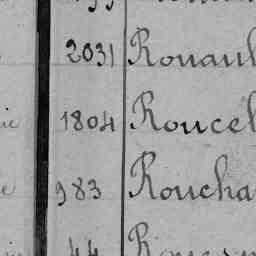 2031 Rouaul
1804 Roucel
983 Roucha
44